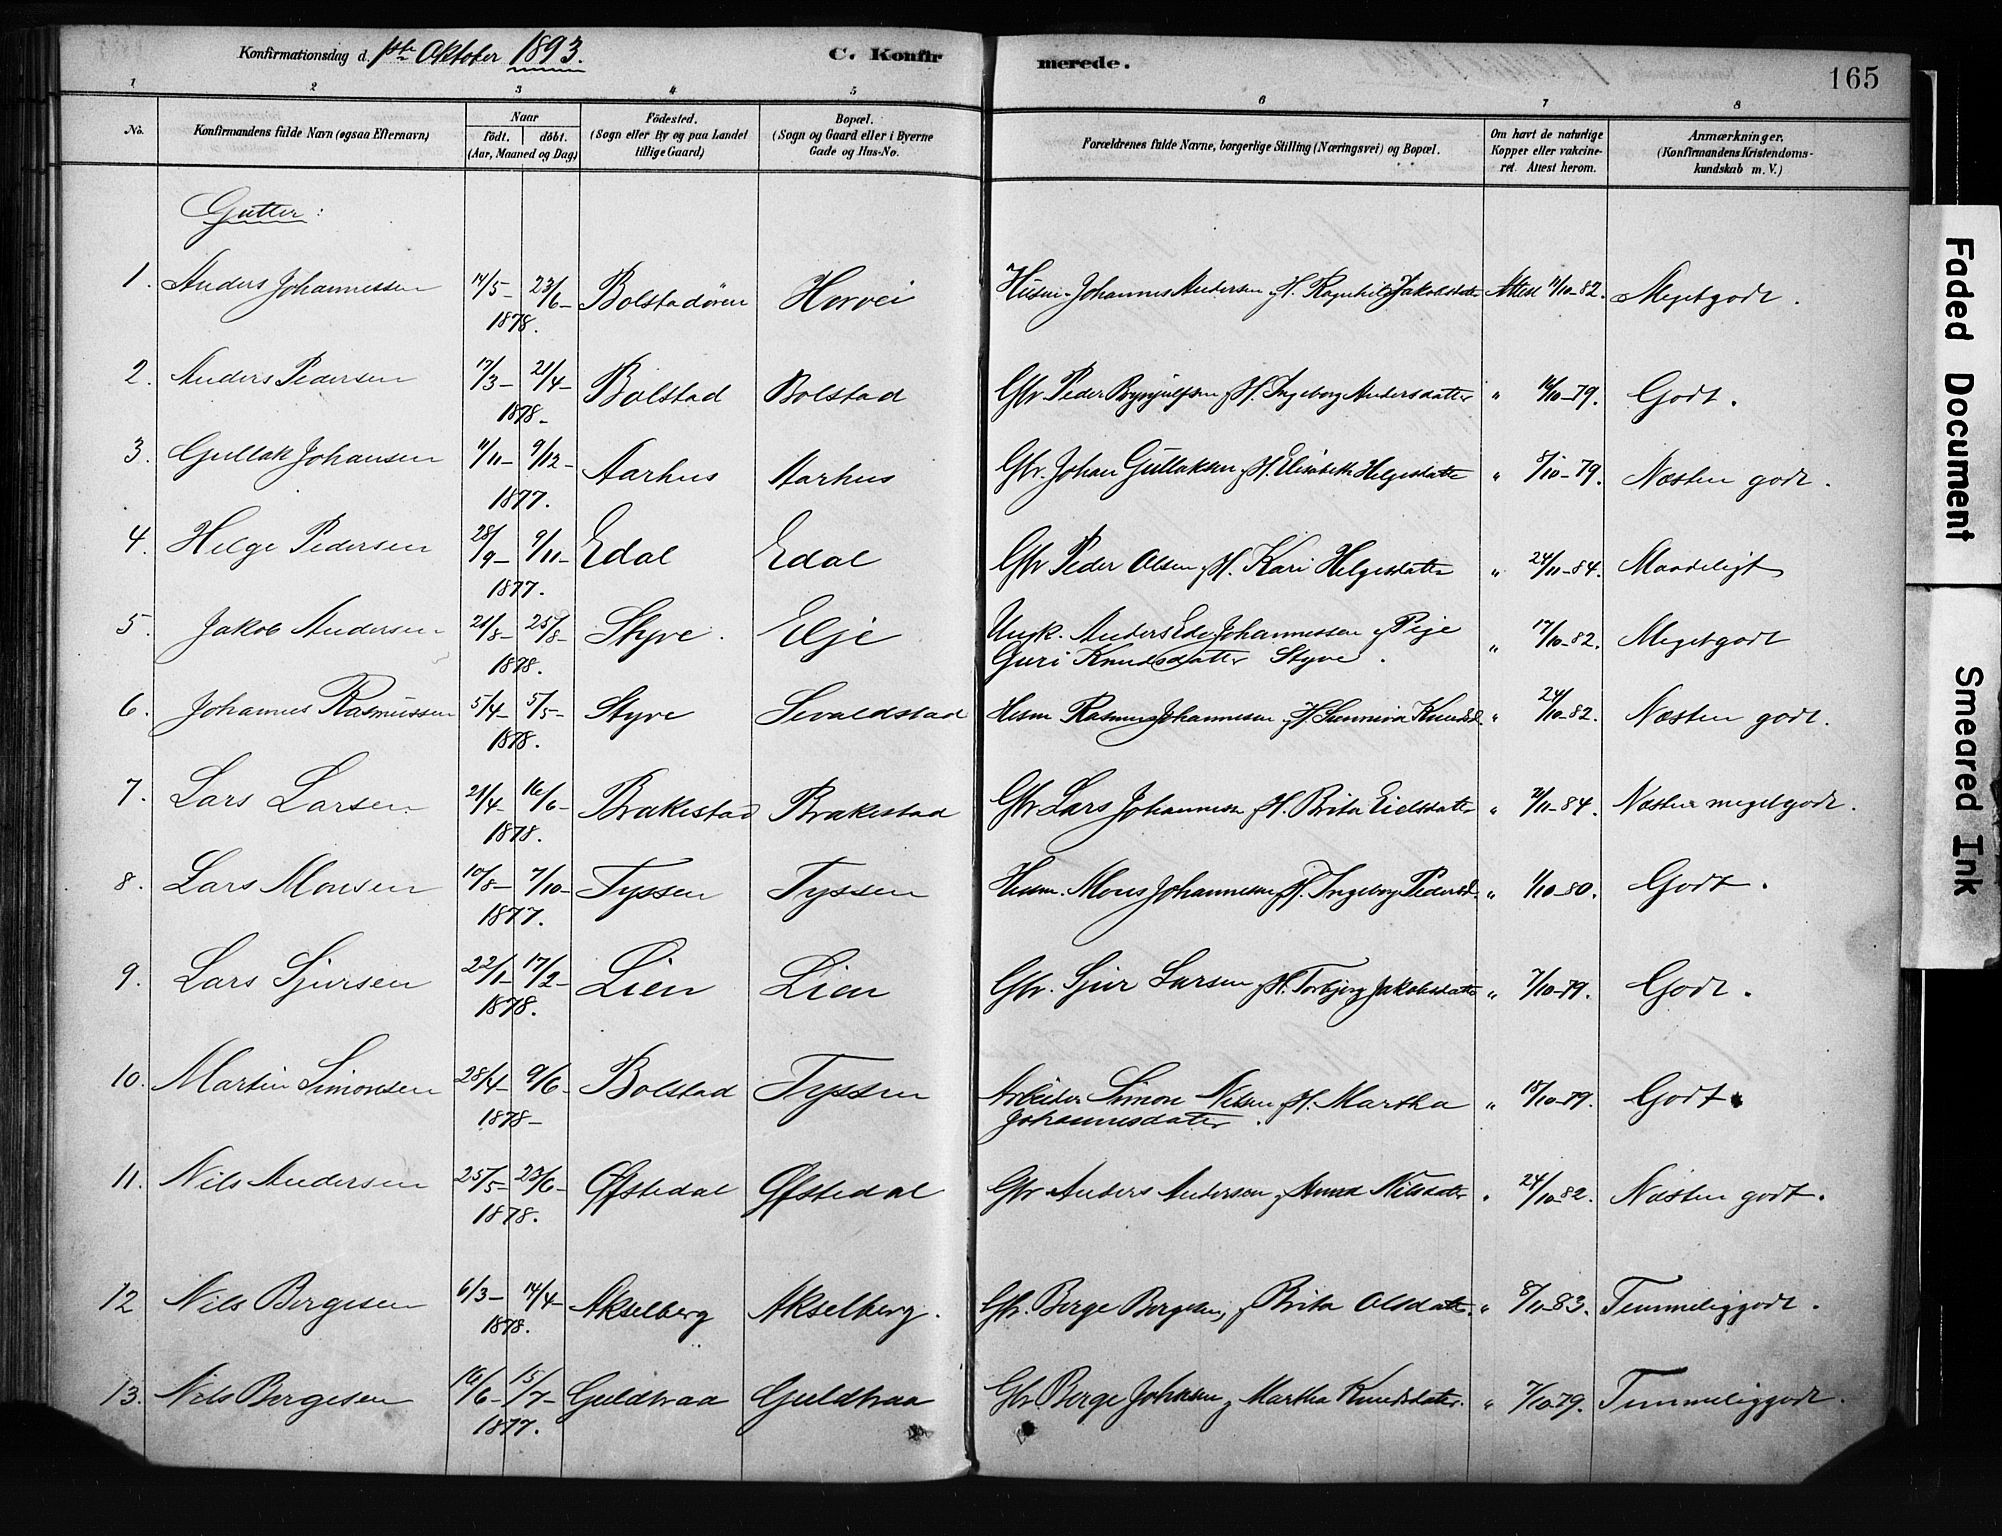 Konfirmationsdag d. 1ste Oktober 1893. C. Konfirmerede. 165
1 2 3 4 5 6 7 8
No. Konfirmandens fulde Navn (ogsaa Efternavn) Naar født. døbt. (Aar, Maaned og Dag) Fødested. (Sogn eller By og paa Landet tillige Gaard) Bopæl. (Sogn og Gaard eller i Byerne Gade og Hus-No. Forældrenes fulde Navne, borgerlige Stilling (Næringsvei) og Bopæl. Om havt de naturlige Kopper eller vakcineret. Attest herom. Anmærkninger. (Konfirmandens Kristendomskundskab m. V.)
Gutter:
1. Anders Johannessen 14/5- 23/6- 1878. Bolstadøren Horvei Husm. Johannes Andersen og H. Ragnhild Jakobsdatter Attest 11/10-82. Megetgodt.
2. Anders Pedersen 17/3- 21/4- 1878. Bolstad Bolstad Gbr. Peder Brynjulfsen og H. Ingeborg Andersdatter " 14/10-79. Godt.
3. Gullak Johansen 11/11- 9/12- 1877. Aarhus Aarhus Gbr. Johan Gullaksen og H. Elisabeth Helgesdatter " 8/10-79. Næsten godt.
4. Helge Pedersen 28/9- 9/11- 1877. Edal Edal Gbr Peder Olsen og H. Kari Helgesdatter " 24/11-84. Maadeligt
5. Jakob Andersen 21/8- 25/8- 1878. Styve. Elje Ungk. Anders Johannessen og Pige
Guri Knudsdatter Styve. " 17/10-82. Megetgodt
6. Johannes Rasmussen 5/4- 5/5- 1878. Styve Sevaldstad Husm Rasmus Johannesen og H. Sunniva Knudsd. " 24/10-82. Næsten godt.
7. Lars Larsen. 21/4- 16/6- 1878. Brakestad Brakestad Gbr Lars Johannessen og H. Brita Eielsdatter " 21/11-84. Næsten megetgodt.
8. Lars Monsen 10/8- 7/10- 1877. Tyssen Tyssen Husm. Mons Johannessen og H. Ingeborg Pedersd. " 1/10-80. Godt.
9. Lars Sjursen 22/1- 17/2- 1878. Lien Lien Gbr. Sjur Larsen og H. Torbjørg Jakobsdatter " 7/10-79. Godt.
10. Martin Simonsen 28/4- 9/6- 1878- Bolstad Tyssen Arbeider Simon Nilsen og H. Martha
Johannesdatter. " 18/10-79. Godt.
11. Nils Andersen 25/5- 20/6- 1878. Øfstedal Øfstedal Gbr Anders Andersen og Anna Nilsdatter " 24/10-82. Næsten godt.
12 Nils Bergesen 6/3- 14/4- 1878. Akselberg Akselberg. Gbr. Berge Bergesen, og Brita Olsdatter. " 8/11-83. Temmeliggodt.
13. Nils Bergesen 16/6- 15/7- 1877. Guldbraa Guldbraa Gbr Berge Johnsen og Martha Knudsdatter. " 7/10-79. Temmeliggodt.
Faded Document
Smeared Ink